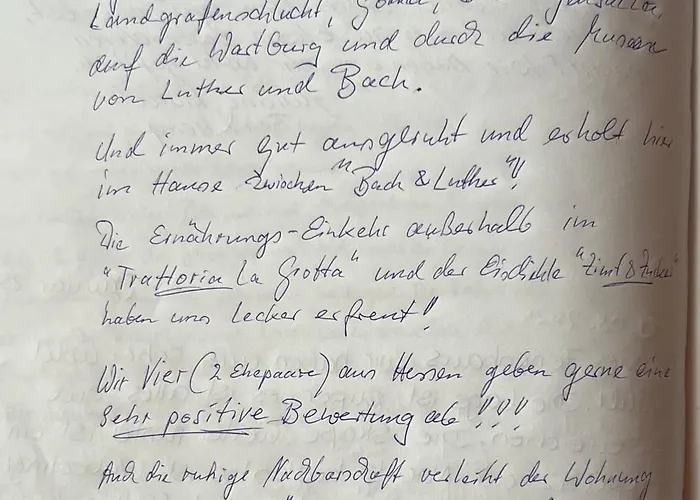 Landgrafenschlucht,
auf die Wartburg und durch die Museen
von Luther und Bach.
Und immer gut ausgeruht und erholt hier
im Hause zwischen "Bach & Luther"!
Die Ernährungs-Einkehr außerhalb im
"Trattoria La Grotta" und der Eisdiele "Zimt & Zucker"
haben uns lecker erfreut!!
Wir Vier (2 Ehepaare) aus Hessen geben gerne eine
sehr positive Bewertung ab !!!!
Auch die ruhige Nachbarschaft verleiht der Wohnung